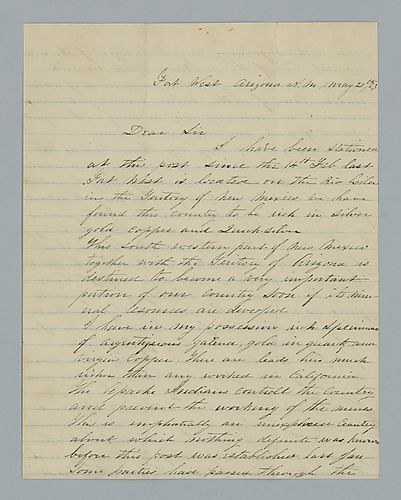 Fort West Arizona N.M. May 25th/63
Dear Sir
I have been stationed
at this post since the 14th Feb last
Fort West is located on the Rio Gila
in the Territory of New Mexico we have
found this Country to be rich in Silver
gold copper and Quicksilver
This South western part of New Mexico
together with the Territory of Arizona is
destined to become a very important
portion of our country soon if its min-
eral resources are developed
I have in my possession rich specimens
of argentiferous Galena gold in quartz and
virgin copper There are leads here much
richer than any worked in California
The Apache Indians controll the Country
and prevent the working of the mines
This is emphatically an unexplored Country
about which nothing definite was known
before this post was established last Jan
Some parties had passed through the